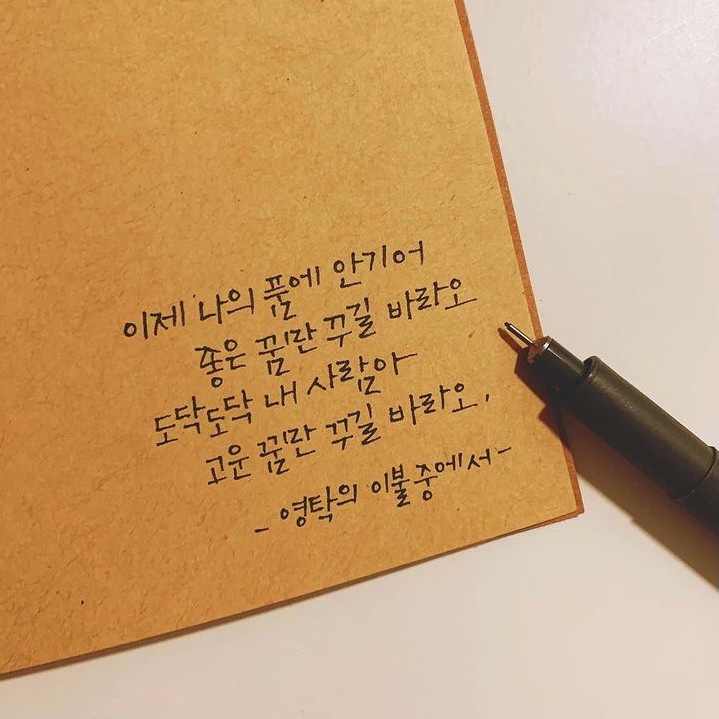 이제 나의 품에 안기어
좋은 꿈만 꾸길 바라오
도닥도닥 내 사람아
고운 꿈만 꾸길 바라오,
- 영탁의 이불 중에서 -